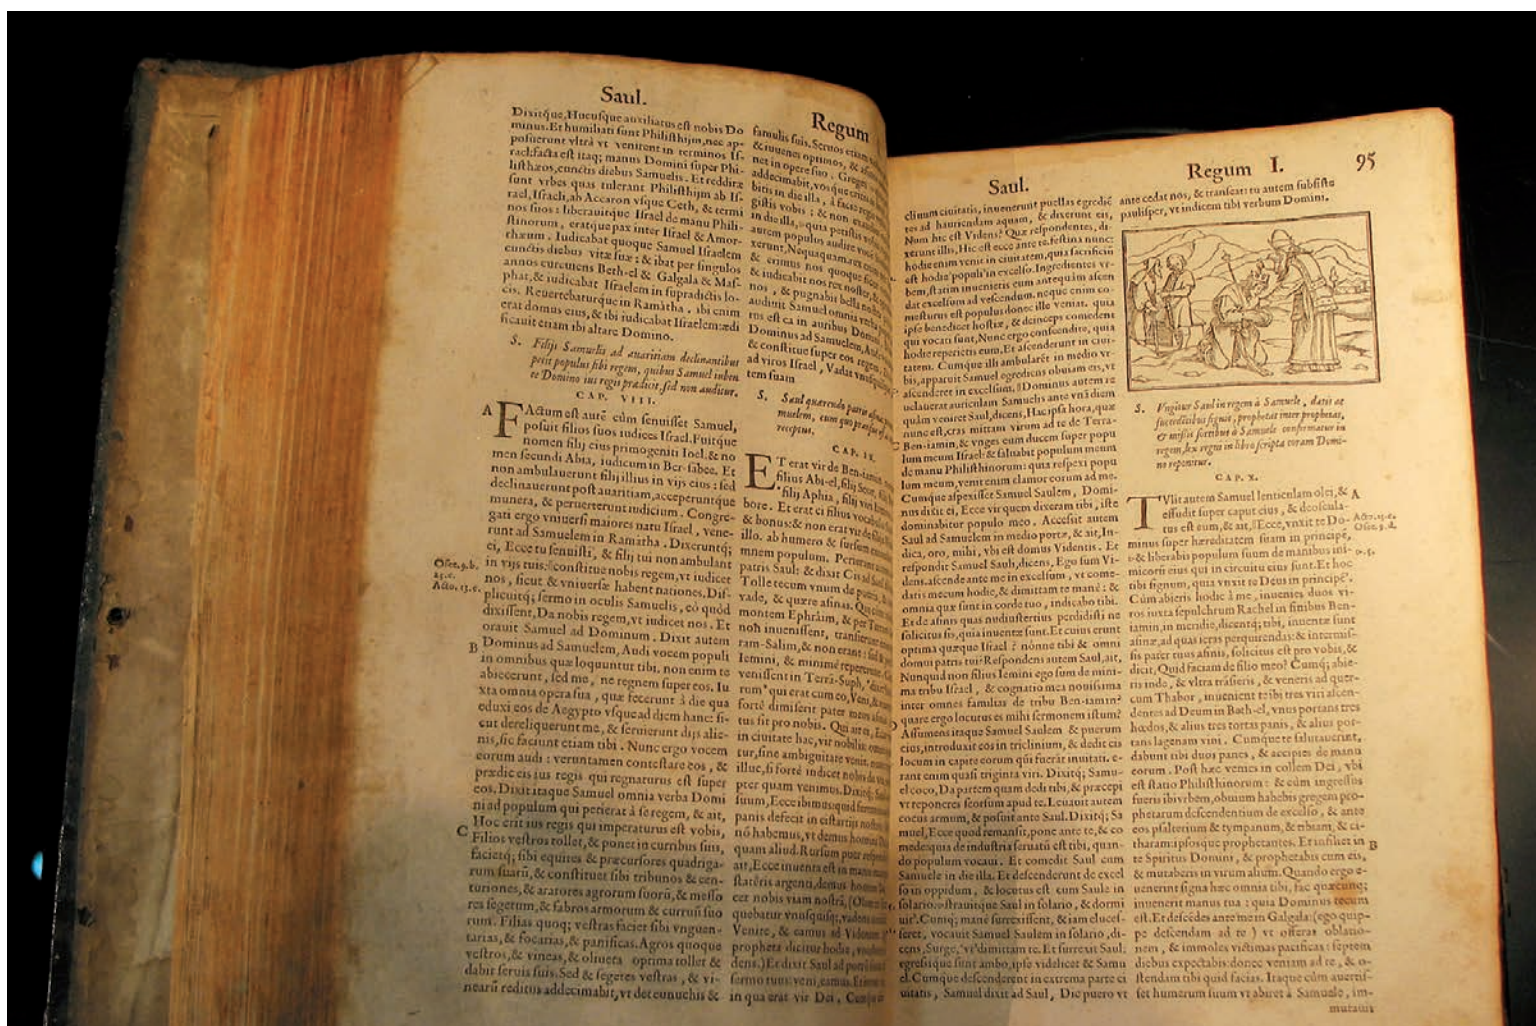 Saul.
Dixitque, Hucusque auxiliatus est nobis Do
minus. Et humiliati sunt Philisthijm, nec ap-
posuerunt vltrà vt venirent in terminos Is-
rael: facta est itaq; manus Domini super Phi-
listhæos, cunctis diebus Samuelis. Et redditæ
sunt vrbes quas tulerant Philisthijm ab Is-
rael, Israeli, ab Accaron vsque Geth, & termi
nos suos: liberauitque Israel de manu Phili-
stinorum, eratque pax inter Israel & Amor-
rhæum. Iudicabat quoque Samuel Israelem
cunctis diebus vitæ suæ: & ibat per singulos
annos circuiens Beth-el & Galgala & Mas-
phat, & iudicabat Israelem in supradictis lo-
cis. Reuertebaturque in Ramàtha. ibi enim
erat domus eius, & ibi iudicabat Israelem: ædi
ficauit etiam ibi altare Domino.
S. Filijs Samuelis ad auaritiam declinantibus
petit populus sibi regem, quibus Samuel iuben
te Domino ius regis prædicit, sed non auditur.
CAP. VIII.
A FActum est autē cùm senuisset Samuel,
posuit filios suos iudices Israel. Fuitque
nomen filij eius primogeniti Ioel, & no
men secundi Abia, iudicum in Ber-sabee. Et
non ambulauerunt filij illius in vijs eius: sed
declinauerunt post auaritiam, acceperuntque
munera, & peruerterunt iudicium. Congre-
gati ergo vniuersi maiores natu Israel, vene-
runt ad Samuelem in Ramàtha. Dixeruntq;
ei, Ecce tu senuisti, & filij tui non ambulant
Osee. 9. b.
in vijs tuis: constitue nobis regem, vt iudicet
nos, sicut & vniuersæ habent nationes. Dis-
Acto. 13. c.
plicuitq; sermo in oculis Samuelis, eò quòd
dixissent, Da nobis regem, vt iudicet nos. Et
orauit Samuel ad Dominum. Dixit autem
B Dominus ad Samuelem, Audi vocem populi
in omnibus quæ loquuntur tibi. non enim te
abiecerunt, sed me, ne regnem super eos. Iu
xta omnia opera sua, quæ fecerunt à die qua
eduxi eos de Aegypto vsque ad diem hanc: si-
cut dereliquerunt me, & seruierunt dijs alie-
nis, sic faciunt etiam tibi. Nunc ergo vocem
eorum audi: veruntamen contestare eos, &
prædic eis ius regis qui regnaturus est super
eos. Dixit itaque Samuel omnia verba Domi
ni ad populum qui petierat à se regem, & ait,
C Hoc erit ius regis qui imperaturus est vobis,
Filios vestros tollet, & ponet in curribus suis,
facietq; sibi equites & præcursores quadriga-
rum suarū, & constituet sibi tribunos & cen-
turiones, & aratores agrorum suorū, & messo
res segetum, & fabros armorum & curruū suo
rum. Filias quoq; vestras faciet sibi vnguen-
tarias, & focarias, & panificas. Agros quoque
vestros, & vineas, & oliueta optima tollet &
dabit seruis suis. Sed & segetes vestras, & vi-
nearū reditus addecimabit, vt det eunuchis &
Regum
famulis suis. Seruos etiam
& iuuenes optimos, &
net in opere suo. Greges
addecimabit, vosque eritis
bitis in die illa, à facie regis
gistis vobis: & non exaudiet
in die illa, quia petistis
autem populus audire vocem
xerunt, Nequaquam: rex enim
& erimus nos quoque sicut
& iudicabit nos rex noster, &
nos, & pugnabit bella nostra
audiuit Samuel omnia verba
tus est ea in auribus Domini
Dominus ad Samuelem, Audi
& constitue super eos regem
ad viros Israel, Vadat vnusquisque
tem suam
S. Saul quærendo patris
muelem, cum quo
receptus.
CAP. IX.
ET erat vir de Ben-iamin
filius Abi-el, filij Seor,
filij Aphia, filij viri
bore. Et erat ei filius vocabulo
& bonus: & non erat vir de filijs
illo. ab humero & sursum
mnem populum. Perierant
patris Saul: & dixit Cis ad Saul
Tolle tecum vnum de pueris,
vade, & quære asinas. Qui
montem Ephràim, & per Terram
non inuenissent, transierunt
ram-Salim, & non erant: sed &
Iemini, & minimè repererunt.
venissent in Terrā-Suph, dixit
rum qui erat cum eo, Veni, &
fortè dimiserit pater meus
tus sit pro nobis. Qui ait ei, Ecce
in ciuitate hac, vir nobilis: omne
tur, sine ambiguitate venit.
illuc, si fortè indicet nobis de
pter quam venimus. Dixitq;
suum, Ecce ibimus: quid feremus
panis defecit in cistarcijs nostris
nō habemus, vt demus homini
quam aliud. Rursum puer respondit
ait, Ecce inuenta est in manu
statèris argenti, demus homini
cet nobis viam nostrā, (Olim
quebatur vnusquisq; vadens
Venite, & eamus ad Videntem
propheta dicitur hodie,
dens.) Et dixit Saul ad puerum
sermo tuus: veni, eamus. Et
in qua erat vir Dei, Cumque
Saul.
cliuum ciuitatis, inuenerunt puellas egredié
tes ad hauriendam aquam, & dixerunt eis,
Num hîc est Videns? Quæ respondentes, di-
xerunt illis, Hîc est: ecce ante te. festina nunc:
hodie enim venit in ciuitatem, quia sacrificiū
est hodie populi in excelso. Ingredientes vr-
bem, statim inuenietis eum antequàm ascen
dat excelsum ad vescendum. neque enim co-
mesturus est populus donec ille veniat. quia
ipse benedicet hostiæ, & deinceps comedent
qui vocati sunt, Nunc ergo conscendite, quia
hodie reperietis eum. Et ascenderunt in ciui-
tatem. Cumque illi ambularēt in medio vr-
bis, apparuit Samuel egrediens obuiam eis, vt
ascenderet in excelsum. Dominus autem re
uelauerat auriculam Samuelis ante vnā diem
quàm veniret Saul, dicens, Hac ipsa hora, quæ
nunc est, cras mittam virum ad te de Terra-
Ben-iamin, & vnges eum ducem super popu
lum meum Israel: & saluabit populum meum
de manu Philisthinorum: quia respexi popu
lum meum, venit enim clamor eorum ad me.
Cumque aspexisset Samuel Saulem, Domi-
nus dixit ei, Ecce vir quem dixeram tibi, iste
dominabitur populo meo. Accessit autem
Saul ad Samuelem in medio portæ, & ait, In-
dica, oro, mihi, vbi est domus Videntis. Et
respondit Samuel Sauli, dicens, Ego sum Vi-
dens. ascende ante me in excelsum, vt come-
datis mecum hodie, & dimittam te manè: &
omnia quæ sunt in corde tuo, indicabo tibi.
Et de asinis quas nudiustertius perdidisti ne
solicitus sis, quia inuentæ sunt. Et cuius erunt
optima quæque Israel? nónne tibi & omni
domui patris tui? Respondens autem Saul, ait,
Nunquid non filius Iemini ego sum de mini-
ma tribu Israel, & cognatio mea nouissima
inter omnes familias de tribu Ben-iamin?
quare ergo locutus es mihi sermonem istum?
Assumens itaque Samuel Saulem & puerum
eius, introduxit eos in triclinium, & dedit eis
locum in capite eorum qui fuerāt inuitati. e-
rant enim quasi triginta viri. Dixitq; Samu-
el coco, Da partem quam dedi tibi, & præcepi
vt reponeres seorsum apud te. Leuauit autem
cocus armum, & posuit ante Saul. Dixitq; Sa
muel, Ecce quod remansit, pone ante te, & co
mede: quia de industria seruatū est tibi, quan-
do populum vocaui. Et comedit Saul cum
Samuele in die illa. Et descenderunt de excel
so in oppidum, & locutus est cum Saule in
solario. strauitque Saul in solario, & dormi
uit. Cumq; manè surrexissent, & iam eluces-
seret, vocauit Samuel Saulem in solario, di-
cens, Surge, vt dimittam te. Et surrexit Saul:
egressique sunt ambo, ipse videlicet & Samu
el. Cumque descenderent in extrema parte ci
uitatis, Samuel dixit ad Saul, Dic puero vt
Regum I. 95
antecedat nos, & transeat: tu autem subsiste
paulisper, vt indicem tibi verbum Domini.
S. Vngitur Saul in regem à Samuele, datis ac
succedētibus signis, prophetat inter prophetas,
& missis sortibus à Samuele confirmatur in
regem, lex regni in libro scripta coram Domi-
no reponitur.
CAP. X.
TVlit autem Samuel lenticulam olei, & A
effudit super caput eius, & deoscula-
tus est eum, & ait, Ecce, vnxit te Do- Act. 13. c.
minus super hæreditatem suam in principē, Osee. 13. d.
& liberabis populum suum de manibus ini-
micorū eius qui in circuitu eius sunt. Et hoc
tibi signum, quia vnxit te Deus in principē.
Cùm abieris hodie à me, inuenies duos vi-
ros iuxta sepulchrum Rachel in finibus Ben-
iamin, in meridie, dicentq; tibi, inuentæ sunt
asinæ, ad quas ieras perquirendas: & intermis-
sis pater tuus asinis, solicitus est pro vobis, &
dicit, Quid faciam de filio meo? Cumq; abie-
ris inde, & vltra trāsieris, & veneris ad quer-
cum Thabor, inuenient te ibi tres viri ascen-
dentes ad Deum in Bath-el, vnus portans tres
hœdos, & alius tres tortas panis, & alius por-
tans lagenam vini. Cumque te salutauerint,
dabunt tibi duos panes, & accipies de manu
eorum. Post hæc venies in collem Dei, vbi
est statio Philisthinorum: & cùm ingressus
fueris ibi vrbem, obuium habebis gregem pro-
phetarum descendentium de excelso, & ante
eos psalterium & tympanum, & tibiam, & ci-
tharam: ipsosque prophetantes. Et insiliet in B
te Spiritus Domini, & prophetabis cum eis,
& mutaberis in virum alium. Quando ergo e-
uenerint signa hæc omnia tibi, fac quæcunq;
inuenerit manus tua: quia Dominus tecum
est. Et descēdes ante me in Galgala: (ego quip-
pe descendam ad te) vt offeras oblatio-
nem, & immoles victimas pacificas: septem
diebus expectabis: donec veniam ad te, & o-
stendam tibi quid facias. Itaque cùm auertis-
set humerum suum vt abiret à Samuele, im-
mutauit